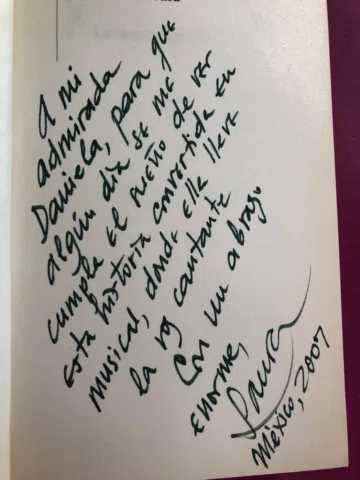 A mi
admirada
Daniela, para que
algún día se me
cumpla el sueño de ver
esta historia convertida en
musical, donde ella lleve
la voz cantante
Con un abrazo
enorme,
Laura
México, 2007